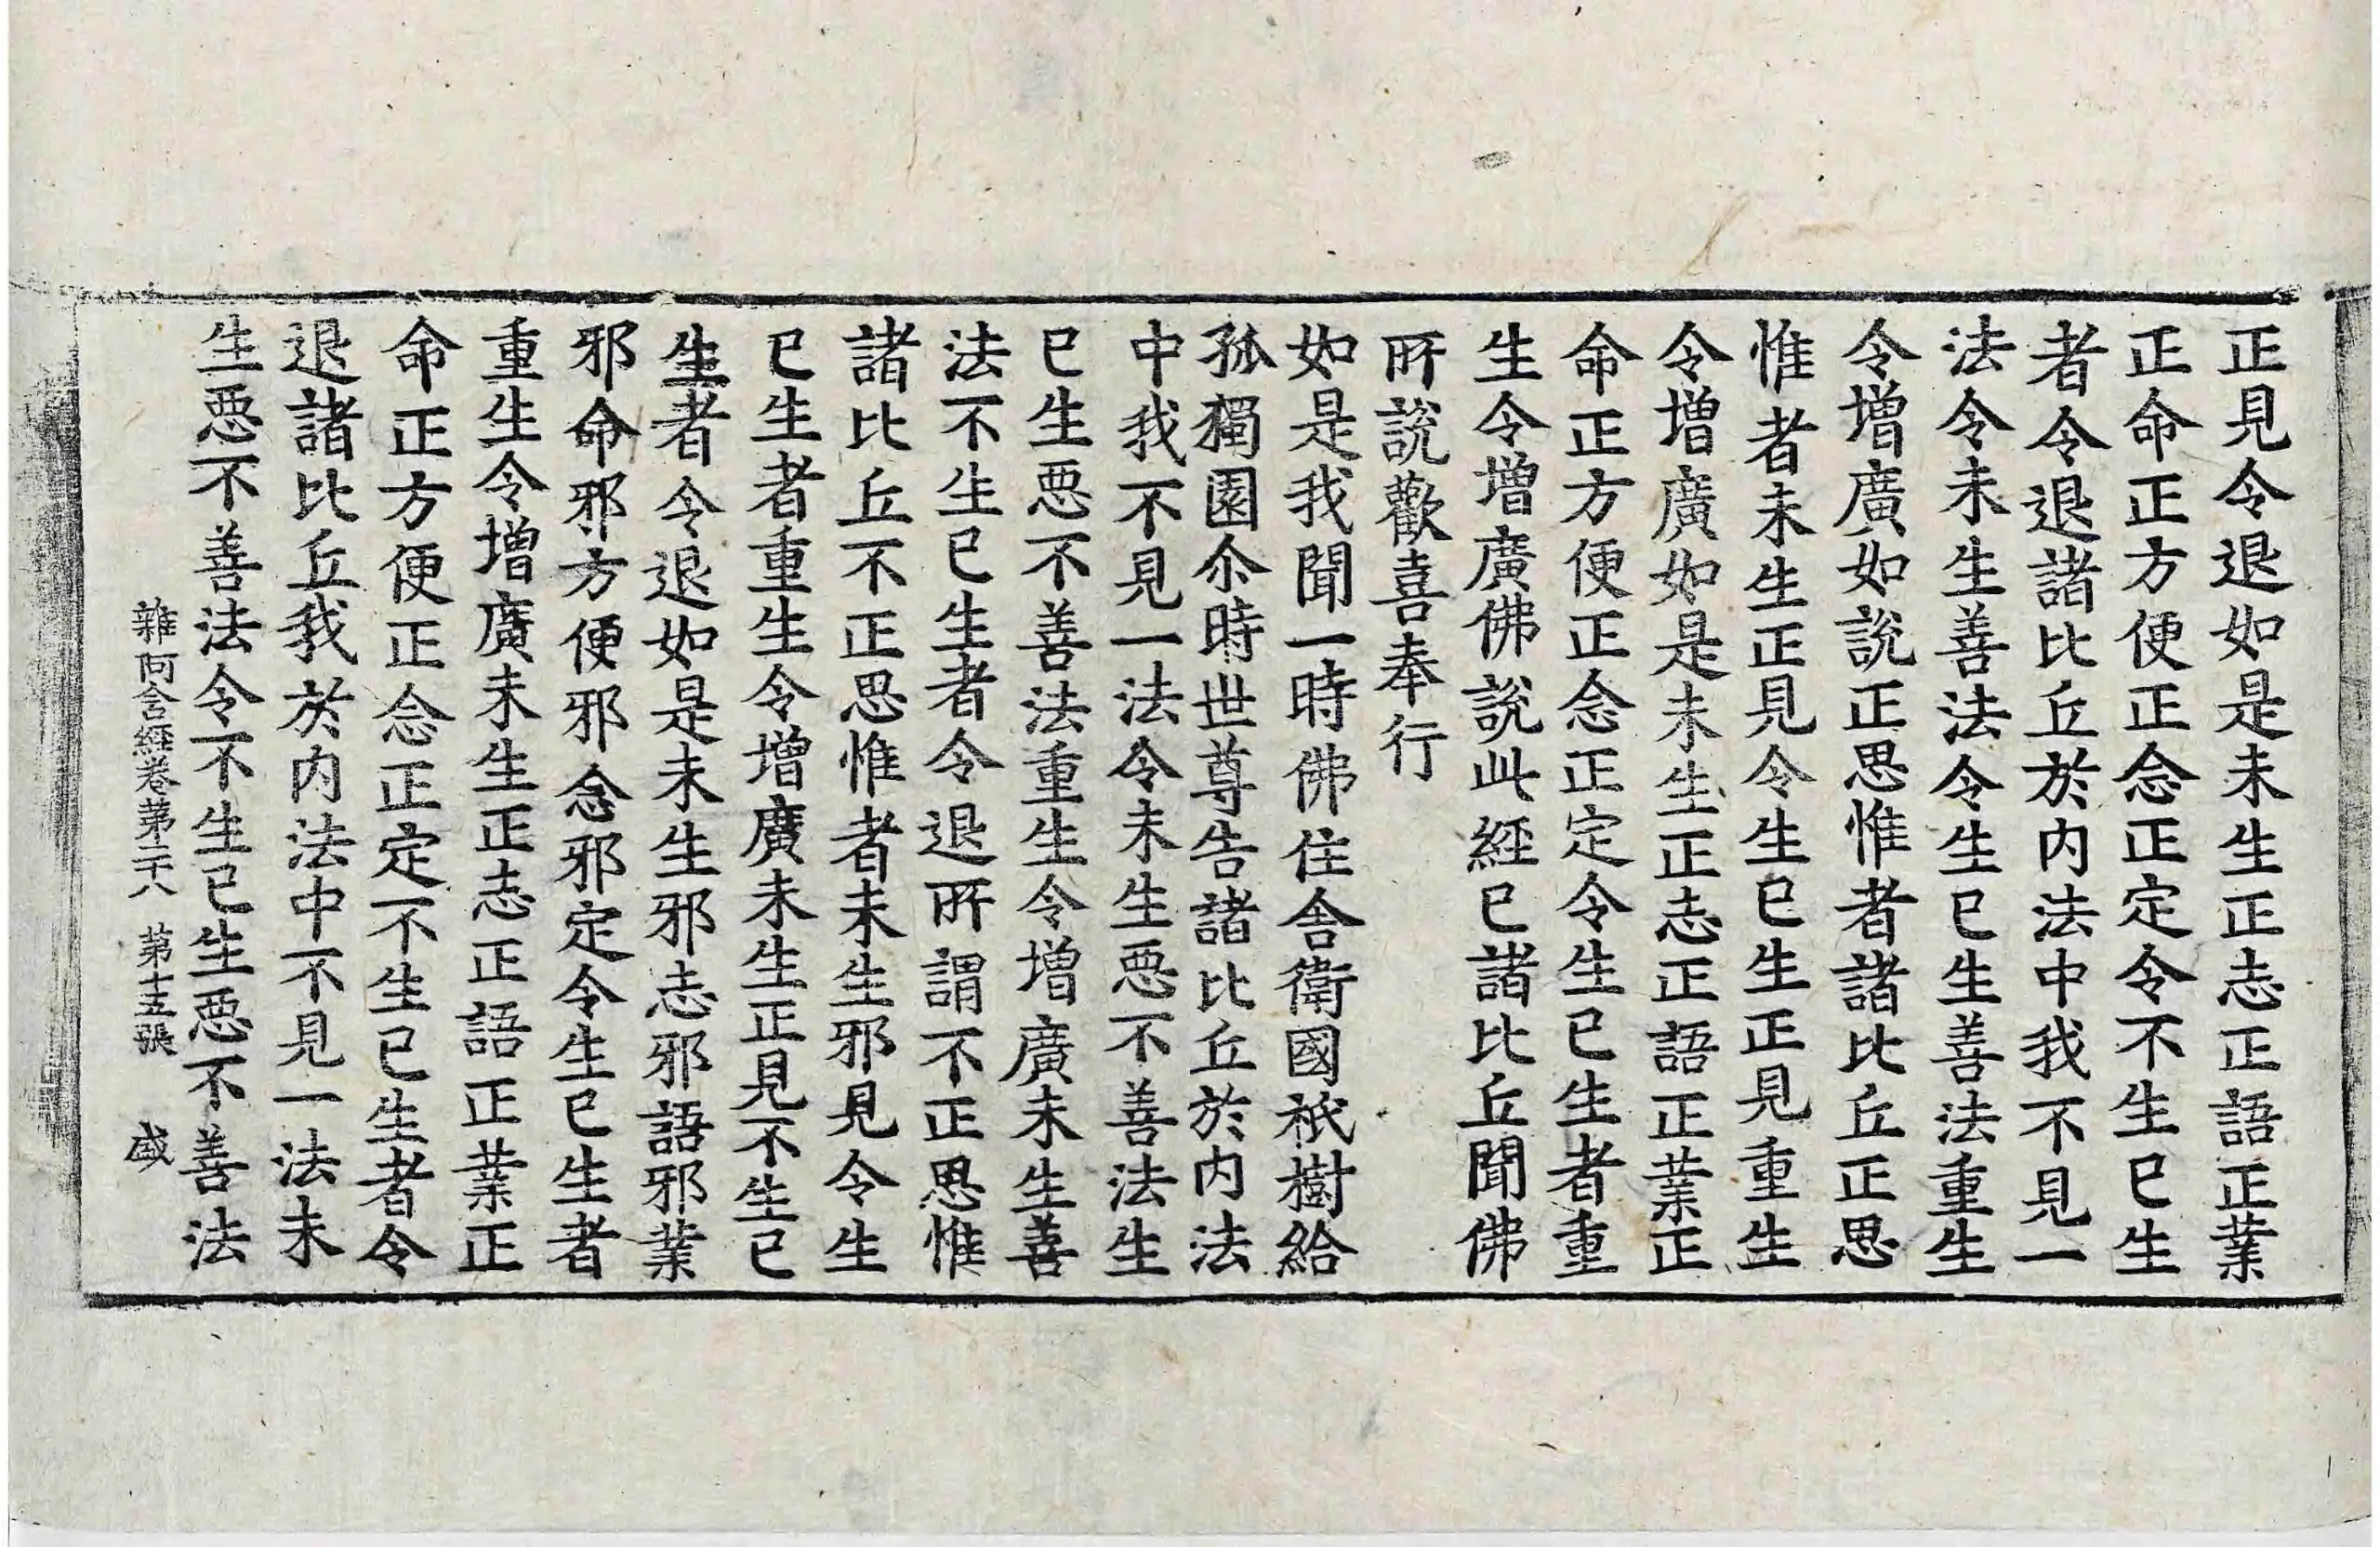 正見令退如是未生正志正語正業
正命正方便正念正定令不生已生
者令退諸比丘於内法中我不見一
法令未生善法令生已生善法重生
令增廣如說正思惟者諸比丘正思
惟者未生正見令生已生正見重生
令增廣如是未生正志正語正業正
命正方便正念正定令生已生者重
生令增廣佛說此經已諸比丘聞佛
所說歡喜奉行
如是我聞一時佛住舍衛國祇樹給
孤獨園尒時世尊告諸比丘於内法
中我不見一法令未生惡不善法生
已生惡不善法重生令增廣未生善
法不生已生者令退所謂不正思惟
諸比丘不正思惟者未生邪見令生
已生者重生令增廣未生正見不生已
生者令退如是未生邪志邪語邪業
邪命邪方便邪念邪定令生已生者
重生令增廣未生正志正語正業正
命正方便正念正定不生已生者令
退諸比丘我於内法中不見一法未
生惡不善法令不生已生惡不善法
雜阿含經卷第二十八 第十五張 盛